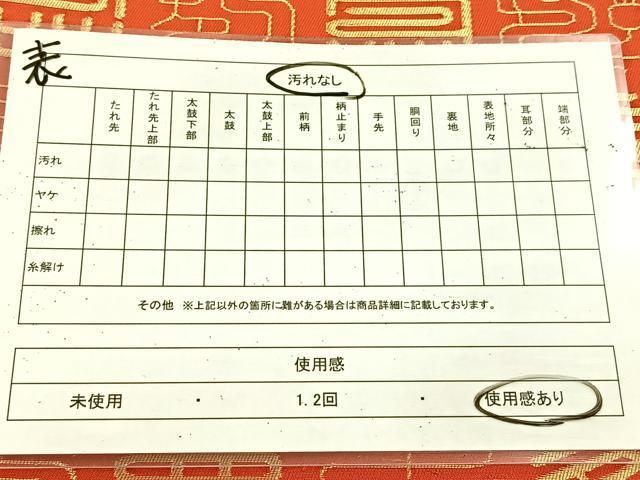 表
汚れなし
たれ先 たれ先上部 太鼓下部 太鼓 太鼓上部 前柄 柄止まり 手先 胴回り 裏地 表地所々 耳部分 端部分
汚れ
ヤケ
擦れ
糸解け
その他 ※上記以外の箇所に難がある場合は商品詳細に記載しております。
使用感
未使用 ・ 1.2回 ・ 使用感あり